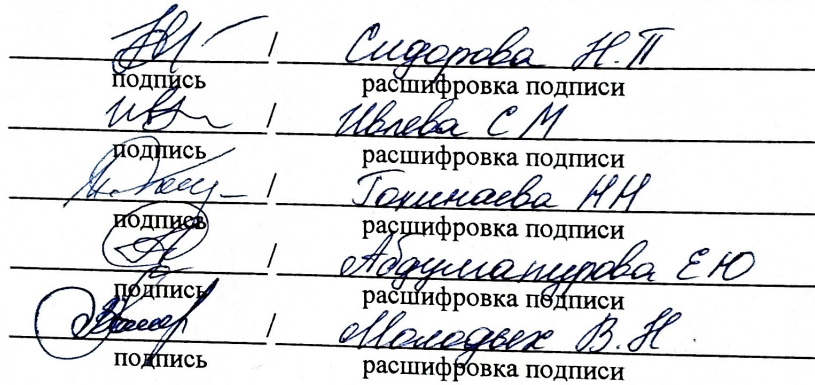 / Сидорова Н.П
подпись расшифровка подписи
/ Ивлева С М
подпись расшифровка подписи
/ НН
подпись расшифровка подписи
/ Е Ю
подпись расшифровка подписи
/ Молодых В.Н
подпись расшифровка подписи